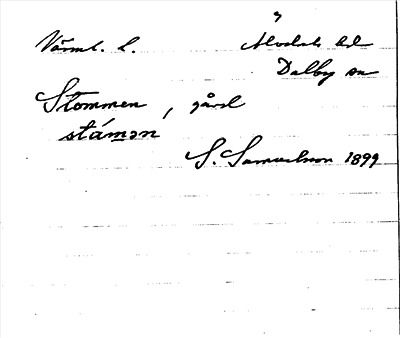 Värml. l. Älvdals hd
Dalby sn
Stommen, gård
stámǝn
S. Samuelsson 1899